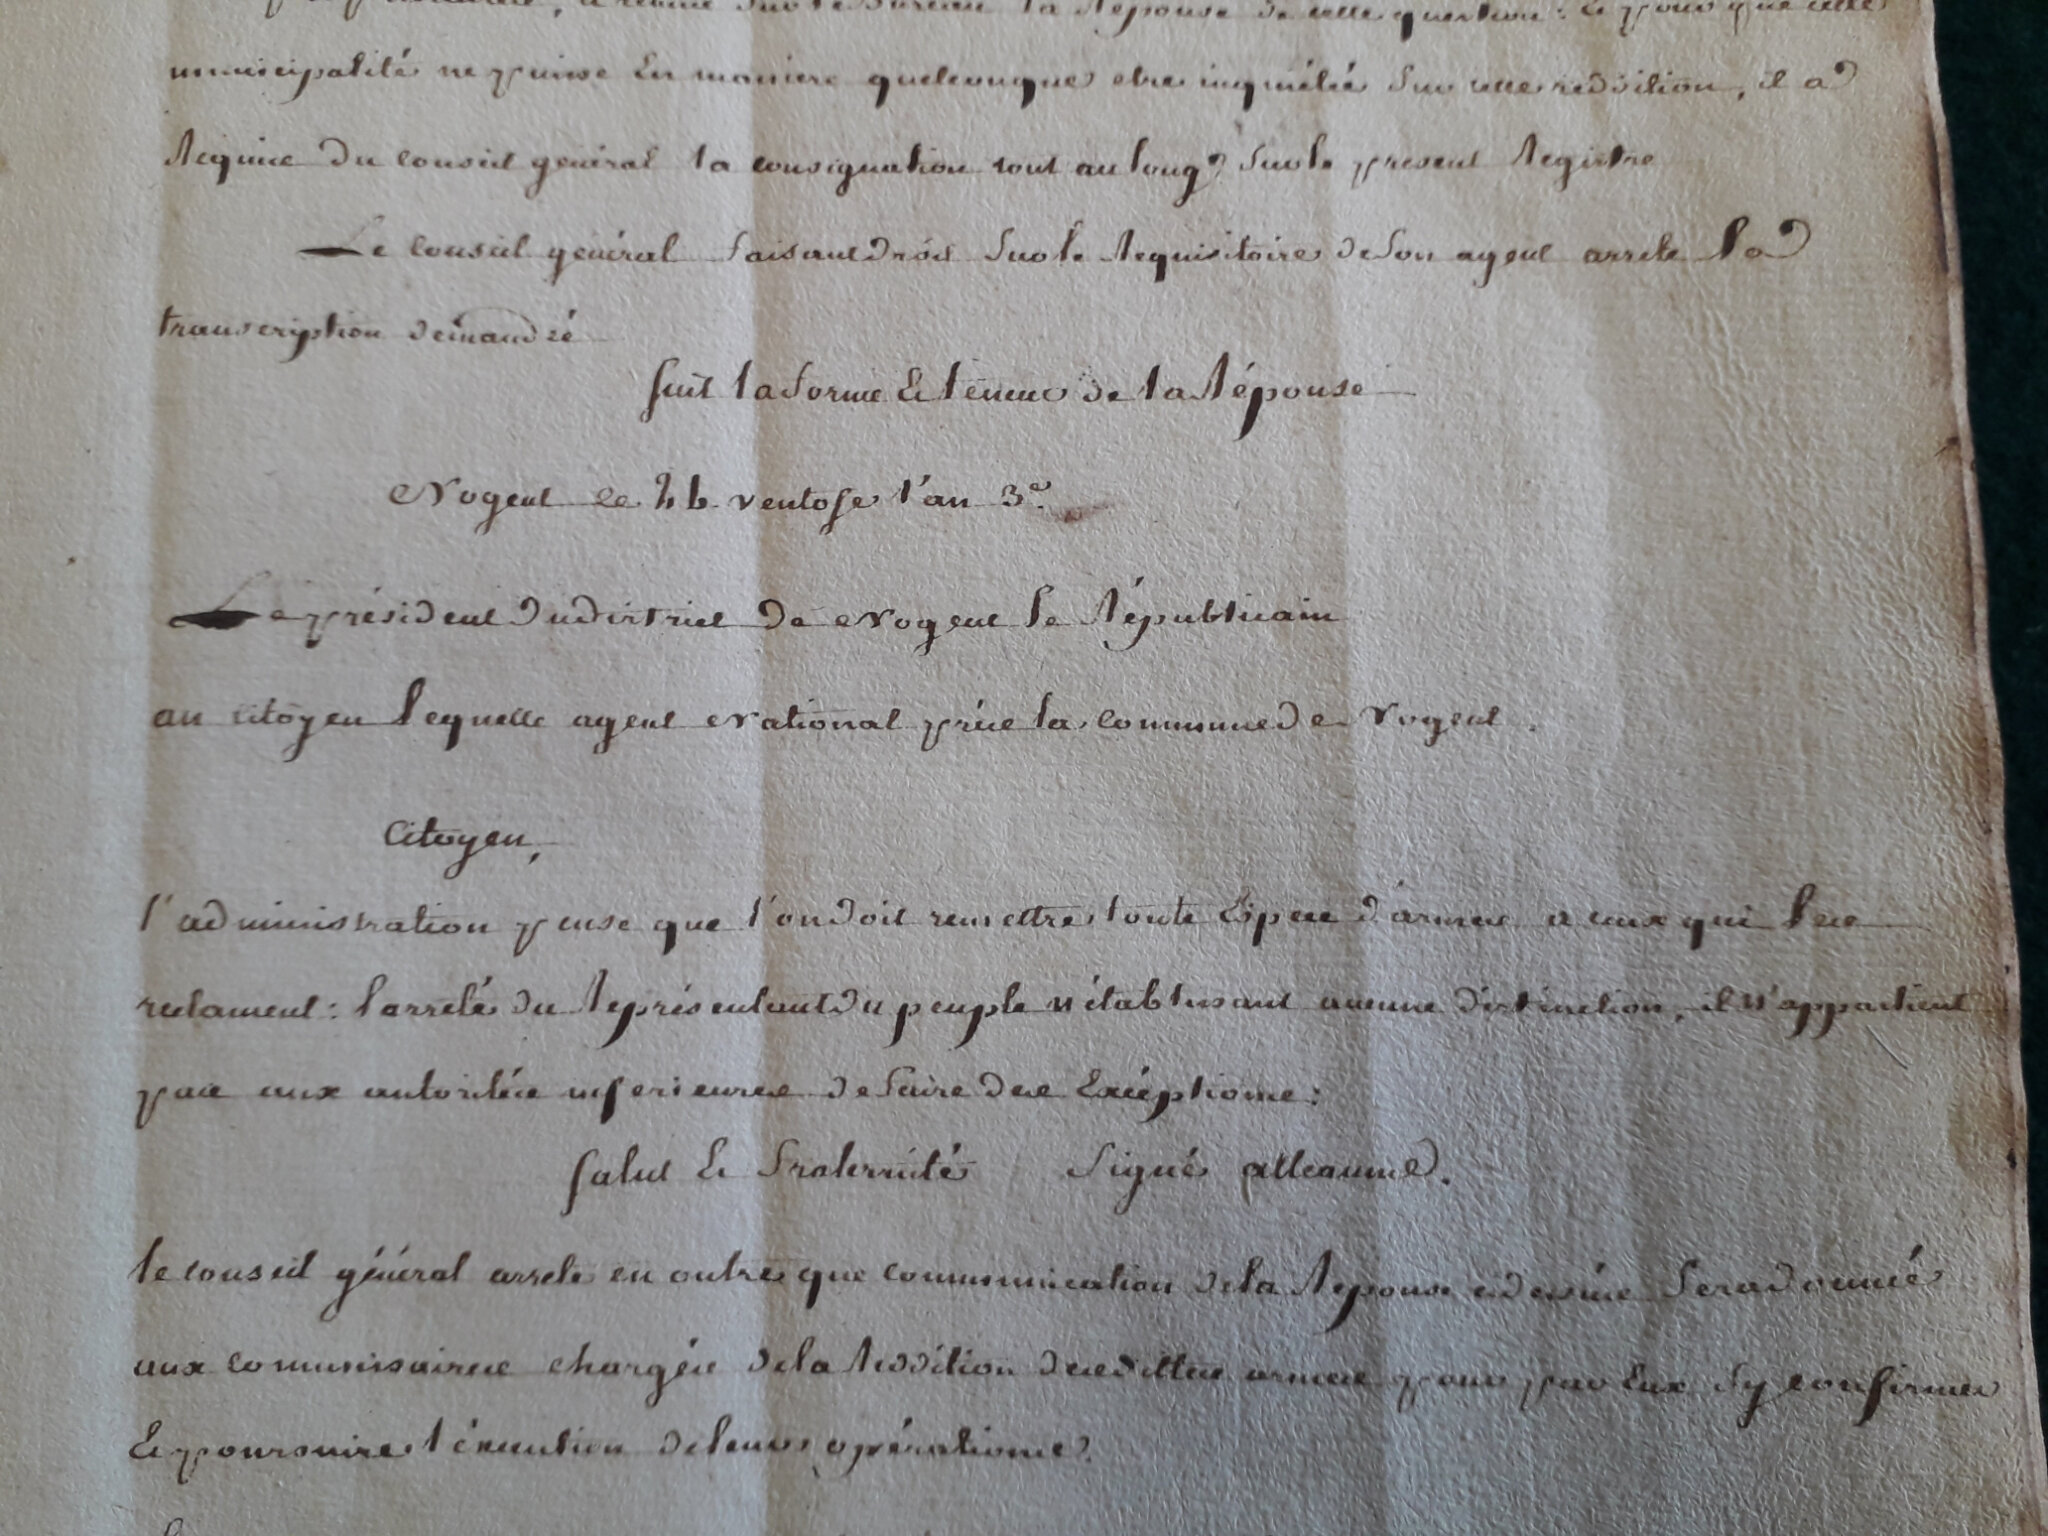 a remise sur le Bureau la Réponse de cette question: & pour que cette
municipalité ne puisse En maniere quelconque etre inquiétée sur cette reddition, il a
Requis du conseil général la consignation tout au long sur le present Registre
Le conseil général faisant droit sur le Requisitoire de son agent arrete la
transcription demandée
suit la forme & teneur de la Réponse
Nogent le 26 ventose l'an 3e.
Le président du district de Nogent le Républicain
au citoyen lequette agent National près la commune de Nogent.
Citoyen,
l'administration pense que l'on doit remettre toute Espece d'armes a ceux qui les
reclament: l'arrêté du Représentant du peuple n'établissant aucune distinction, il n'appartient
pas aux autorités inferieures de faire des Excéptions:
salut & fraternité Signé alleaume.
le conseil général arrete en outre que communication de la Reponse cidessus sera donnée
aux commissaires chargés de la Reddition desdittes armes pour par Eux sy conformer
& poursuire l'éxecution de leurs opérations.